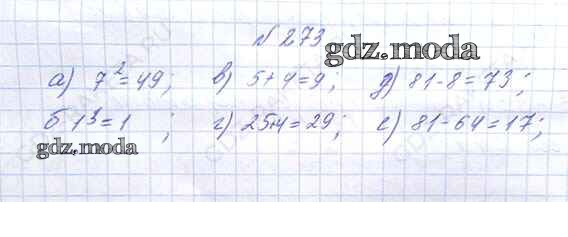 № 273
gdz.moda
а) 7² = 49; в) 5+4=9; д) 81-8=73;
б 1³ = 1 ; г) 25+4=29; е) 81-64=17;
gdz.moda